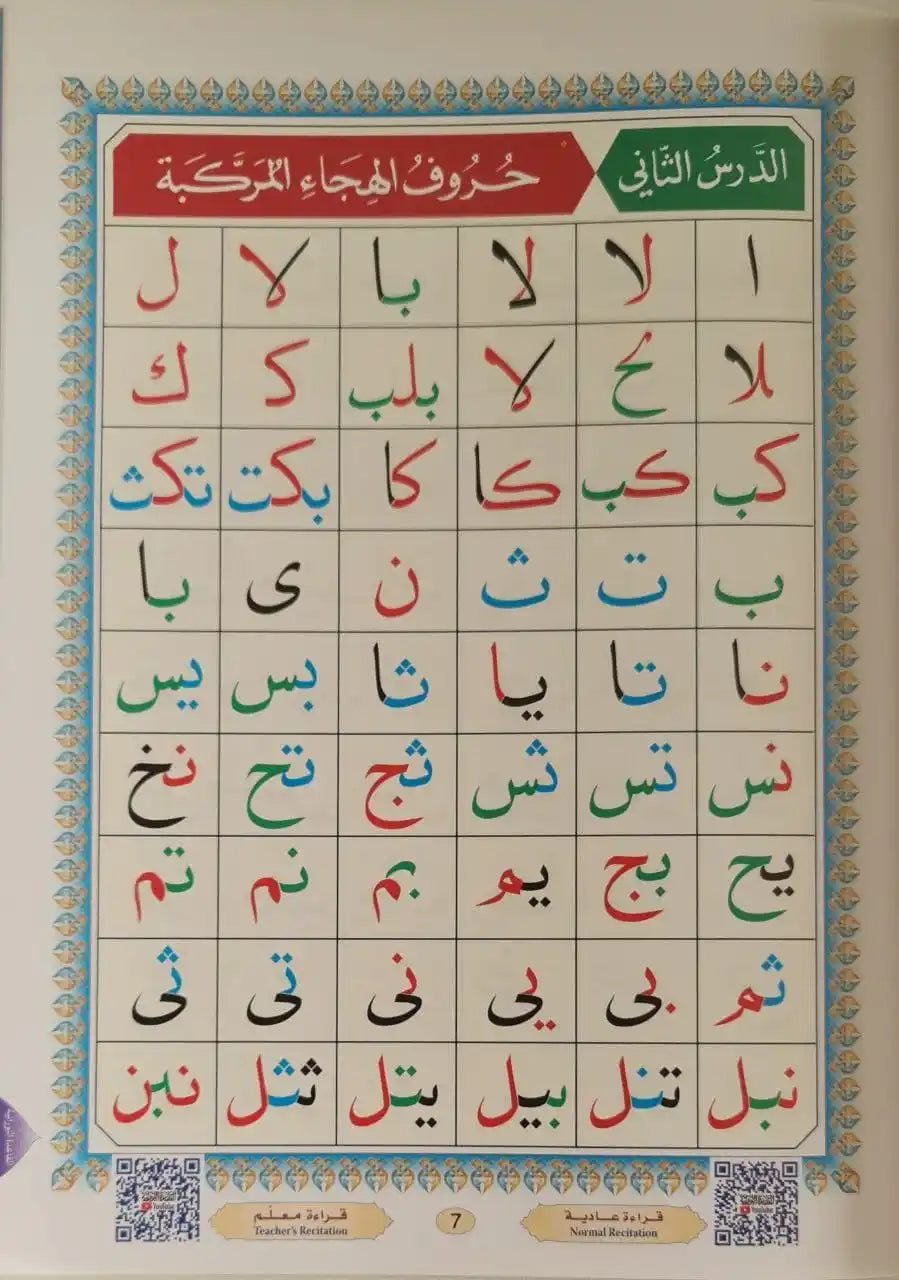 الدَّرسُ الثَّانِي حُرُوفُ الهِجَاءِ المُرَكَّبَة
ا لا لا با لا ل
لا لح لا بلب كـ ك
كب كب كا كا بكت تكث
ب ت ث ن ى با
نا تا يا ثا بس يس
نس تس ثس ثج تح نخ
يح بج يم بم نم تم
ثم بى يى نى تى ثى
نبل تنل بيل يتل ثثل نبن
قراءة معلّم 7 قراءة عادية
Teacher's Recitation Normal Recitation